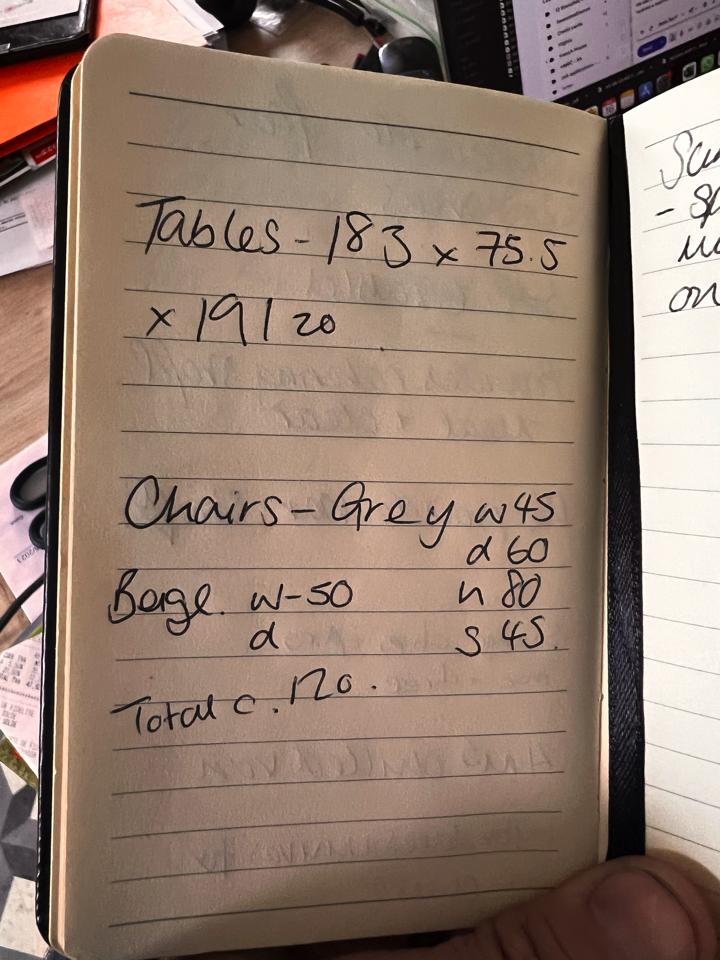 Tables - 183 x 75.5
x 19 | 20
Chairs - Grey w 45
d 60
Beige. w - 50 h 80
d s 45.
Total c. 120.
on